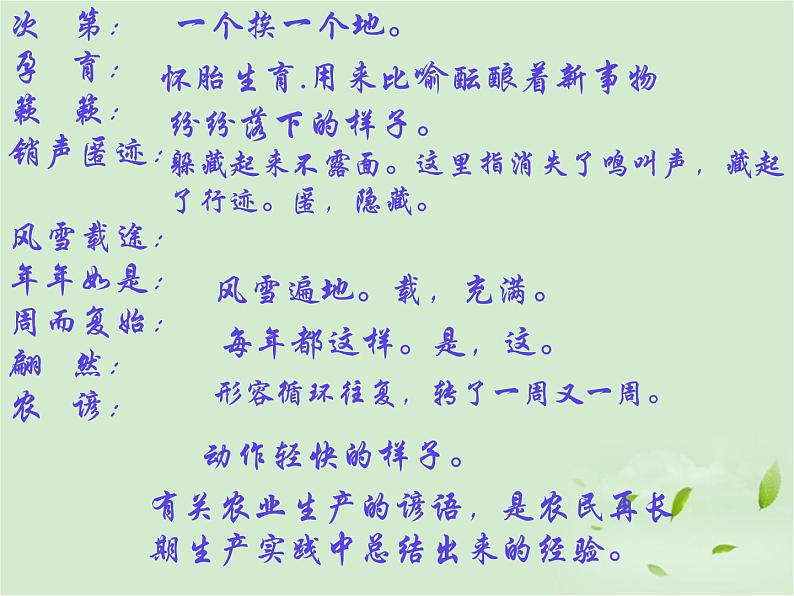 次 第：
一个挨一个地。
孕 育：
怀胎生育.用来比喻酝酿着新事物
簌 簌：
纷纷落下的样子。
销声匿迹：
躲藏起来不露面。这里指消失了鸣叫声，藏起
了行迹。匿，隐藏。
风雪载途：
风雪遍地。载，充满。
年年如是：
每年都这样。是，这。
周而复始：
形容循环往复，转了一周又一周。
翩 然：
动作轻快的样子。
农 谚：
有关农业生产的谚语，是农民再长
期生产实践中总结出来的经验。